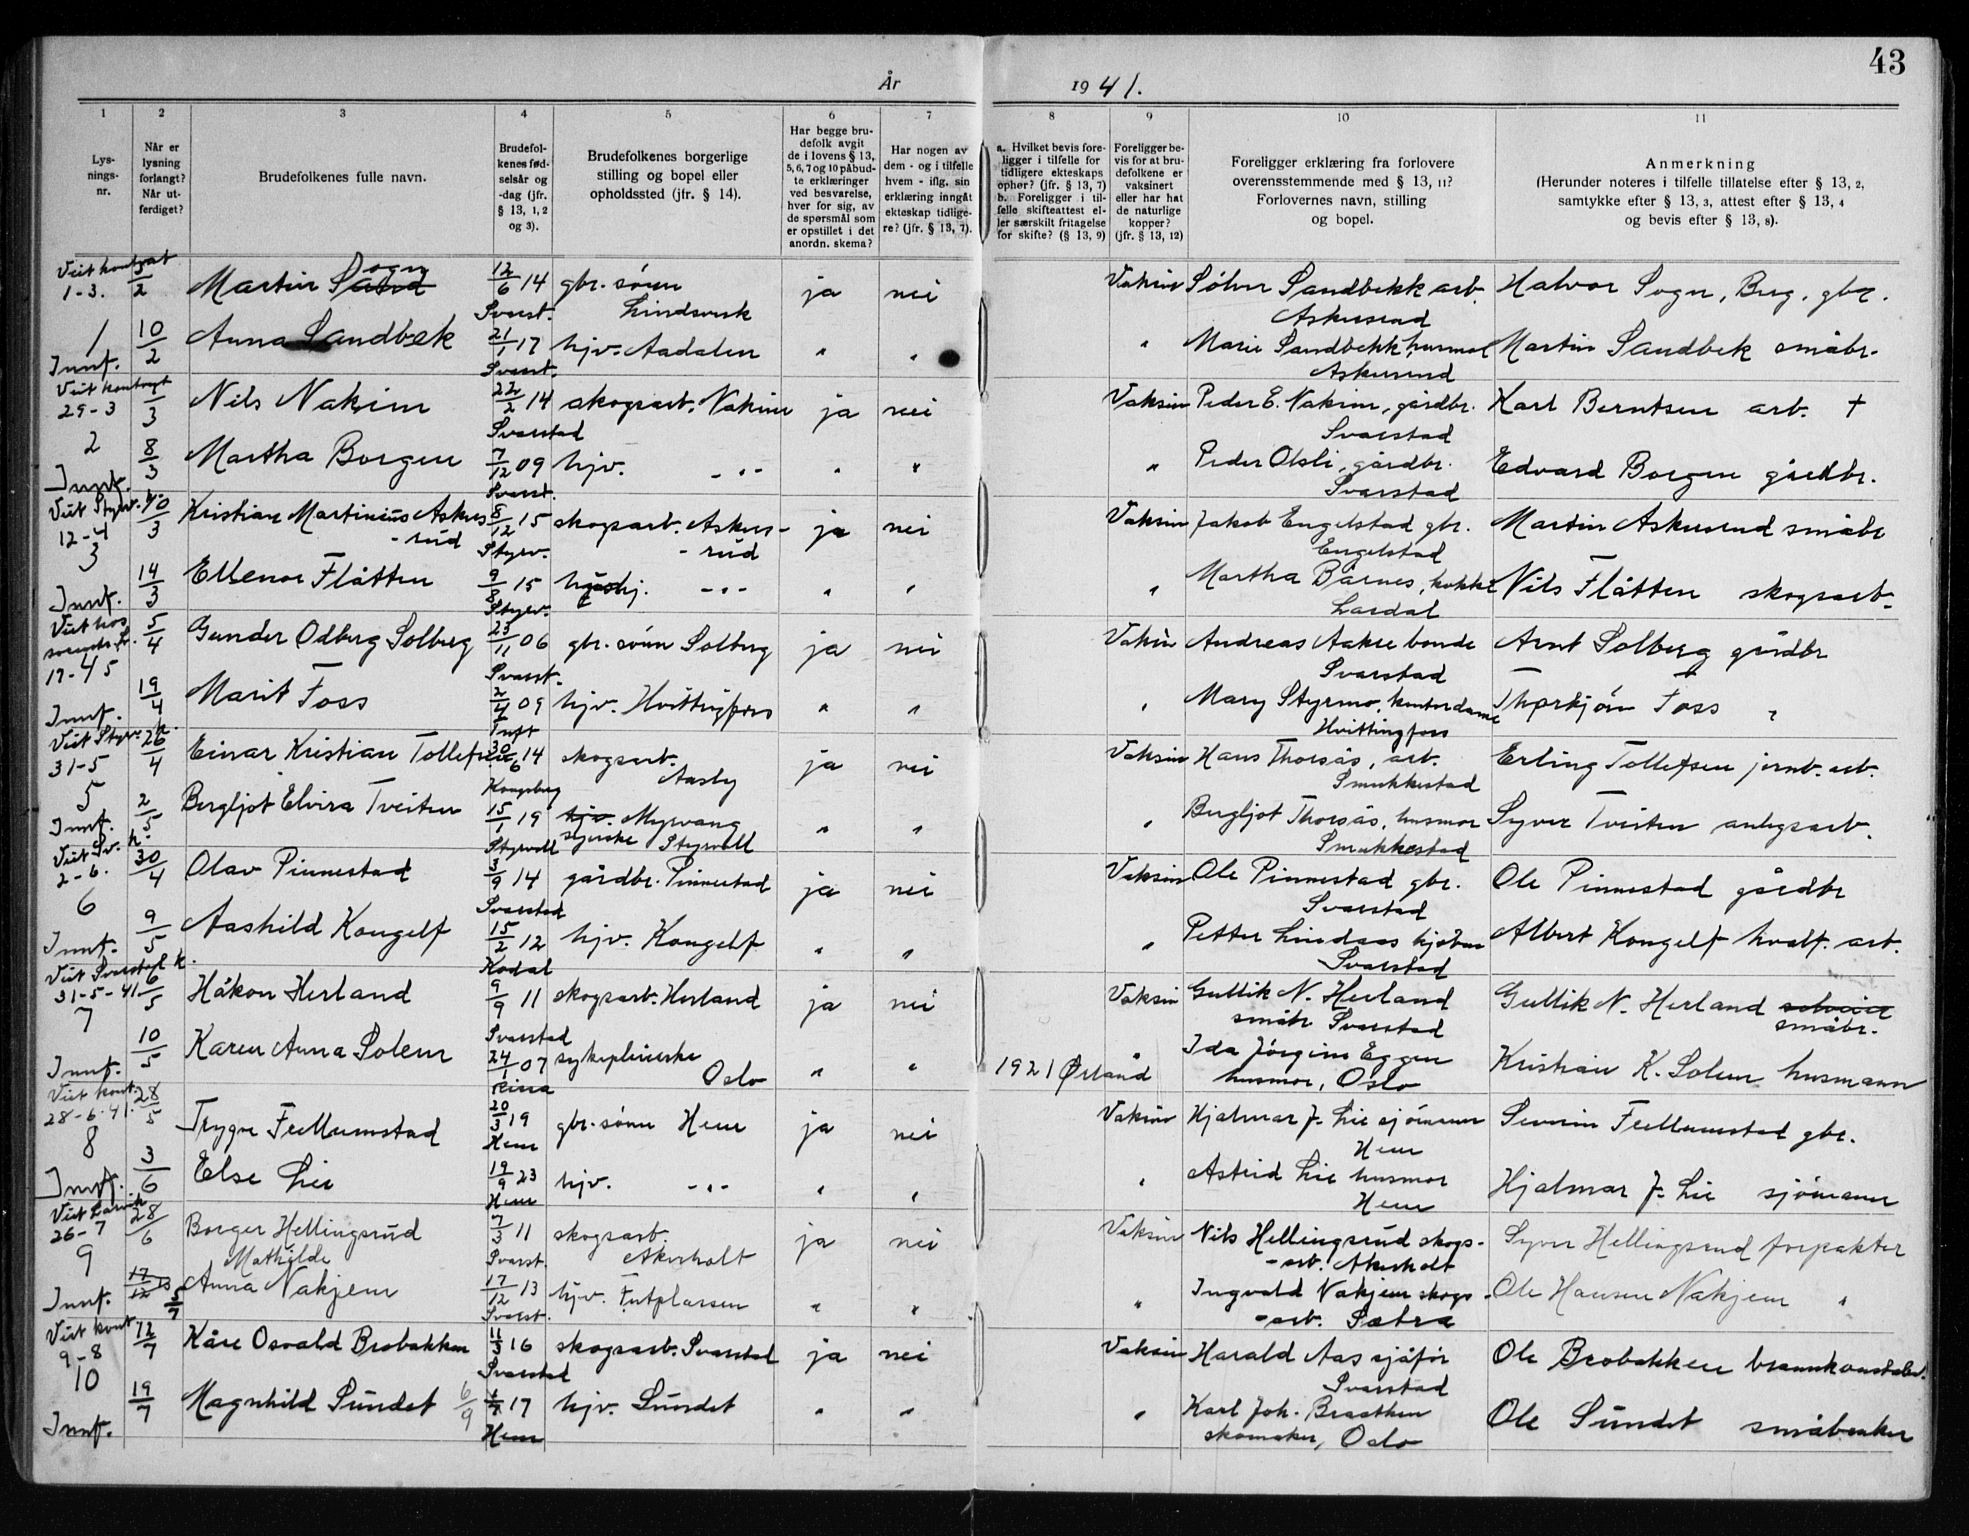 43
År 1941.
1 2 3 4 5 6 7 8 9 10 11
Lys-
nings-
nr.
Når er
lysning
forlangt?
Når ut-
ferdiget?
Brudefolkenes fulle navn.
Brudefol-
kenes fød-
selsår og
-dag (jfr.
§ 13, 1, 2
og 3).
Brudefolkenes borgerlige
stilling og bopel eller
opholdssted (jfr. § 14).
Har begge bru-
defolk avgit
de i lovens § 13,
5, 6, 7 og 10 påbud-
te erklæringer
ved besvarelse,
hver for sig, av
de spørsmål som
er opstillet i det
anordn. skema?
Har nogen av
dem - og i tilfelle
hvem - iflg. sin
erklæring inngåt
ekteskap tidlige-
re? (jfr. § 13, 7).
a. Hvilket bevis fore-
ligger i tilfelle for
tidligere ekteskaps
ophør? (jfr. § 13, 7)
b. Foreligger i til-
felle skifteattest el-
ler særskilt fritagelse
for skifte? (§ 13, 9)
Foreligger be-
vis for at bru-
defolkene er
vaksinert
eller har hat
de naturlige
kopper?
(jfr. § 13, 12)
Foreligger erklæring fra forlovere
overensstemmende med § 13, 11?
Forlovernes navn, stilling
og bopel.
Anmerkning
(Herunder noteres i tilfelle tillatelse efter § 13, 2,
samtykke efter § 13, 3, attest efter § 13, 4
og bevis efter § 13, 8).
Viet kontrakt 1-3. 3/2 Martin Sogn 12/6 14 Svarst. gbr. sønn Lindsverk ja nei Vaksin Sølver Sandbekk arb. Askerud Halvor Sogn, Berg, gbr.
1 Innf. 10/2 Anna Sandbæk 21/1 17 Svarst. hjv. Aadalen " " " Marie Sandbekk, husmor Martin Sandbek småbr.
Viet kontrakt 29-3 1/3 Nils Nakjim 22/2 14 Svarstad skogsarb. Nakim ja nei Vaksin Peder E. Nakim, gårdbr. Svarstad Karl Berntsen arb. †
2 Innf. 8/3 Martha Borgen 7/12 09 Svarst. hjv. -"- " " " Peder Olsli, gårdbr. Svarstad Edvard Borgen gårdbr.
Viet Styrv. k. 12-4 10/3 Kristian Martinius Askes-rud 8/12 15 Styrv. skogsarb. Askes-rud ja nei Vaksin Jakob Engelstad gbr. Engelstad Martin Askerud småbr
3 Innf. 14/3 Ellenor Flåtten 9/8 15 Styrv. -"- " " " Martha Bårnes, kokke Lardal Nils Flåtten skogsarb.
Viet hos 17-5 5/4 Gunder Odberg Solberg 23/11 06 Svarst. gbr. sønn Solberg ja nei Vaksin Andreas Aakre bonde Svarstad Arnt Solberg gårdbr
4 Innf. 19/4 Marit Foss 2/4 09 Tuft hjv. Hvittingfoss " " " Mary Styrmo, kontordame Hvittingfoss Thorbjørn Foss "
Viet Styrv. k. 31-5 26/4 Einar Kristian Tollefsen 30/6 14 Kongsberg skogsarb. Aasby ja nei Vaksin Hans Thorsås, arb. Smukkestad Erling Tollefsen jernb. arb.
5 Innf. 2/5 Bergljot Elvira Tveiten 15/1 19 Styrvoll hjv. Myrvang syerske Styrvoll " " " Bergljot Thorsås, husmor Smukkestad Syver Tveiten anlegsarb.
Viet Sv. k. 2-6. 30/4 Olav Pinnestad 3/9 14 Svarstad gårdbr. Pinnestad ja nei Vaksin Ole Pinnestad gbr. Svarstad Ole Pinnestad gårdbr
6 Innf. 9/5 Aashild Kongelf 15/2 12 Kodal hjv. Kongelf " " " Petter Lindaas Svarstad Albert Kongelf hvalf. arb.
Viet Svarstad k. 31-5-41 6/5 Håkon Herland 9/9 11 Svarstad skogsarb. Herland ja nei Vaksin Gullik N. Herland småbr Svarstad Gullik N. Herland småbr.
7 Innf. 10/5 Karen Anna Solem 24/1 07 sykepleierske Oslo " " 1921 Ørland Ida Jørgine Eggen husmor, Oslo Kristian K. Solem husmann
Viet kont. 28-6-41. 28/5 Trygve Fullumstad 20/3 19 Hem gbr. sønn Hem ja nei Vaksin Hjalmar J. Lie sjømann Hem Severin Fullumstad gbr.
8 Innf. 3/6 Else Lie 19/9 23 Hem hjv. -"- " " " Astrid Lie husmor Hem Hjalmar J. Lie sjømann
Viet Larvik k. 26-7 28/6 Borger Hellingsrud 7/3 11 Svarst. skogsarb. Akerholt ja nei Vaksin Nils Hellingsrud skogs-arb. Akerholt Syver Hellingsrud forpakter
9 Innf. 17/12 13 5/7 Anna Mathilde Nakjem 17/12 13 Svarst. hjv. Futplassen " " " Ingvald Nakjem skogs-arb. Sætra Ole Hansen Nakjem "
Viet kont 9-8 12/7 Kåre Osvald Brobakken 11/3 16 Svarstad skogsarb. Svarstad ja nei Vaksin Harald Aas sjåfør Svarstad Ole Brobakken brannkonstabel.
10 Innf. 19/7 Magnhild Sundet 6/9 17 Hem hjv. Sundet " " " Karl Joh. Braathen skomaker, Oslo Ole Sundet småbruker